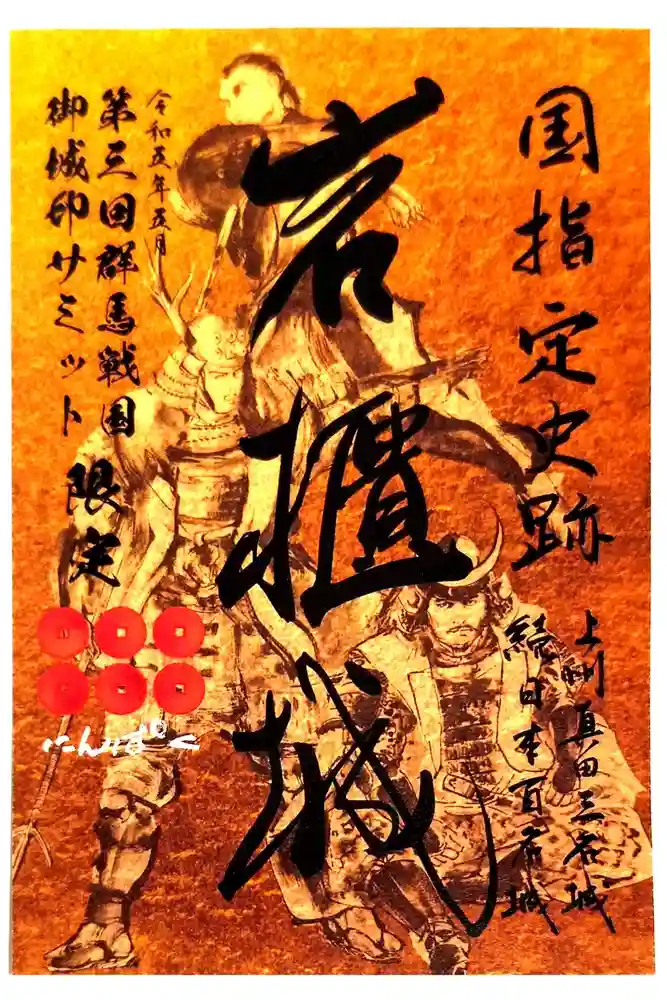 国指定史跡
上州真田三名城
続日本百名城
岩櫃城
令和五年五月
第三回群馬戦国
御城印サミット限定
にんぱく